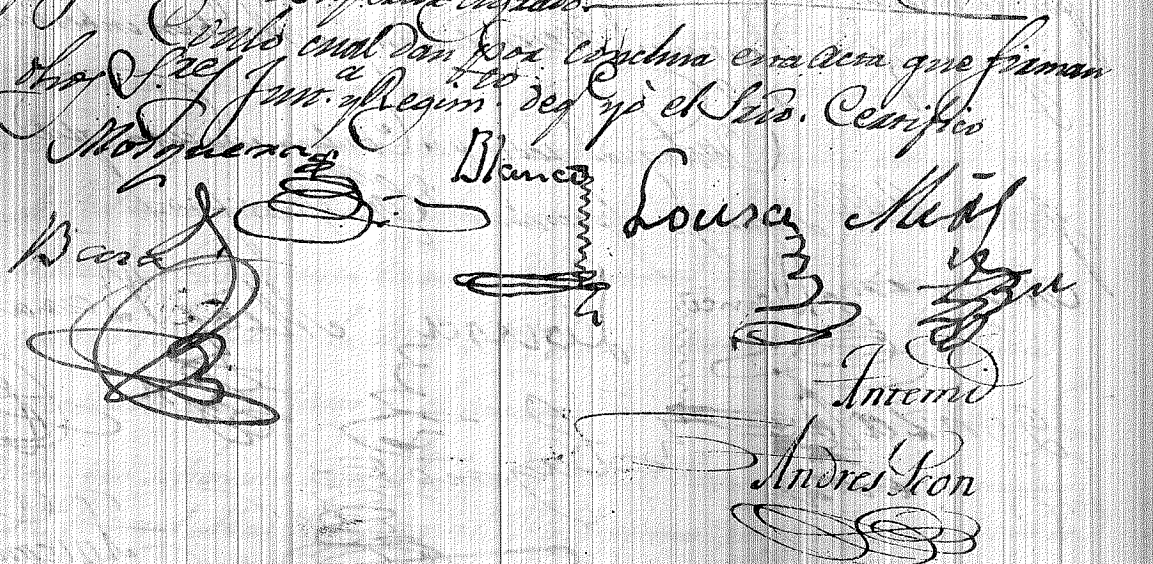 Con lo cual dan por conclusa esta Acta que firman
dhos S.res Just.a y Regim.to deq.e yò el Srio. Certifico
Mosquera
Blanco
Lousa
Mrñs
Baza
Antemi
Andres Leon